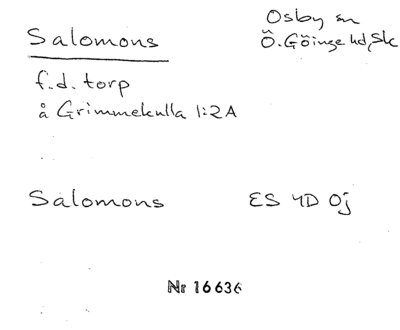 Salomons
Osby sn
Ö. Göinge hd, Sk
f.d. torp
å Grimmekulla 1:2A
Salomons
ES 4D 0j
Nr 16636